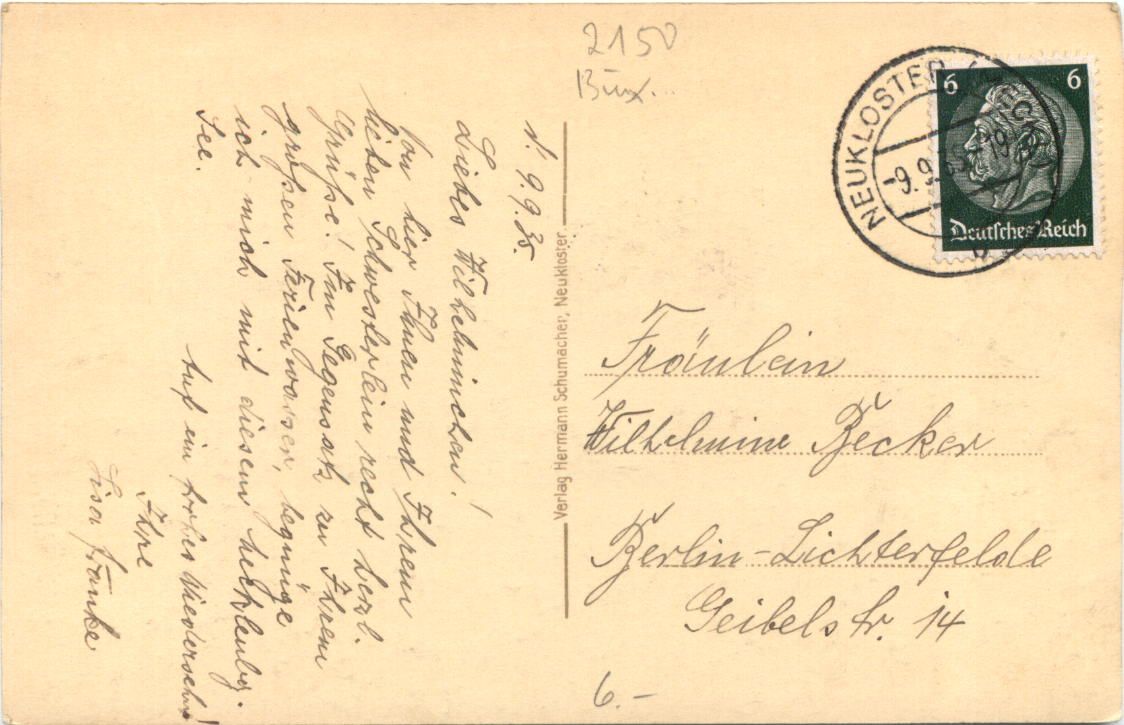 2150
Bux.
N. 9.9.35
Liebes Wilhelminchen!
Von hier Ihnen und Ihrem
lieben Schwesterlein recht herzl.
Grüße! Im Gegensatz zu Ihrem
großen Ferienwasser, begnüge
ich mich mit diesem mecklenbg.
See.
Auf ein frohes Wiedersehn!
Ihre
Lisa Franke
Verlag Hermann Schumacher, Neukloster
NEUKLOSTER (MECKL)
-9.9.35 -19
b
6 6
Deutsches Reich
Fräulein
Wilhelmine Becker
Berlin-Lichterfelde
Geibelstr. 14
6.-